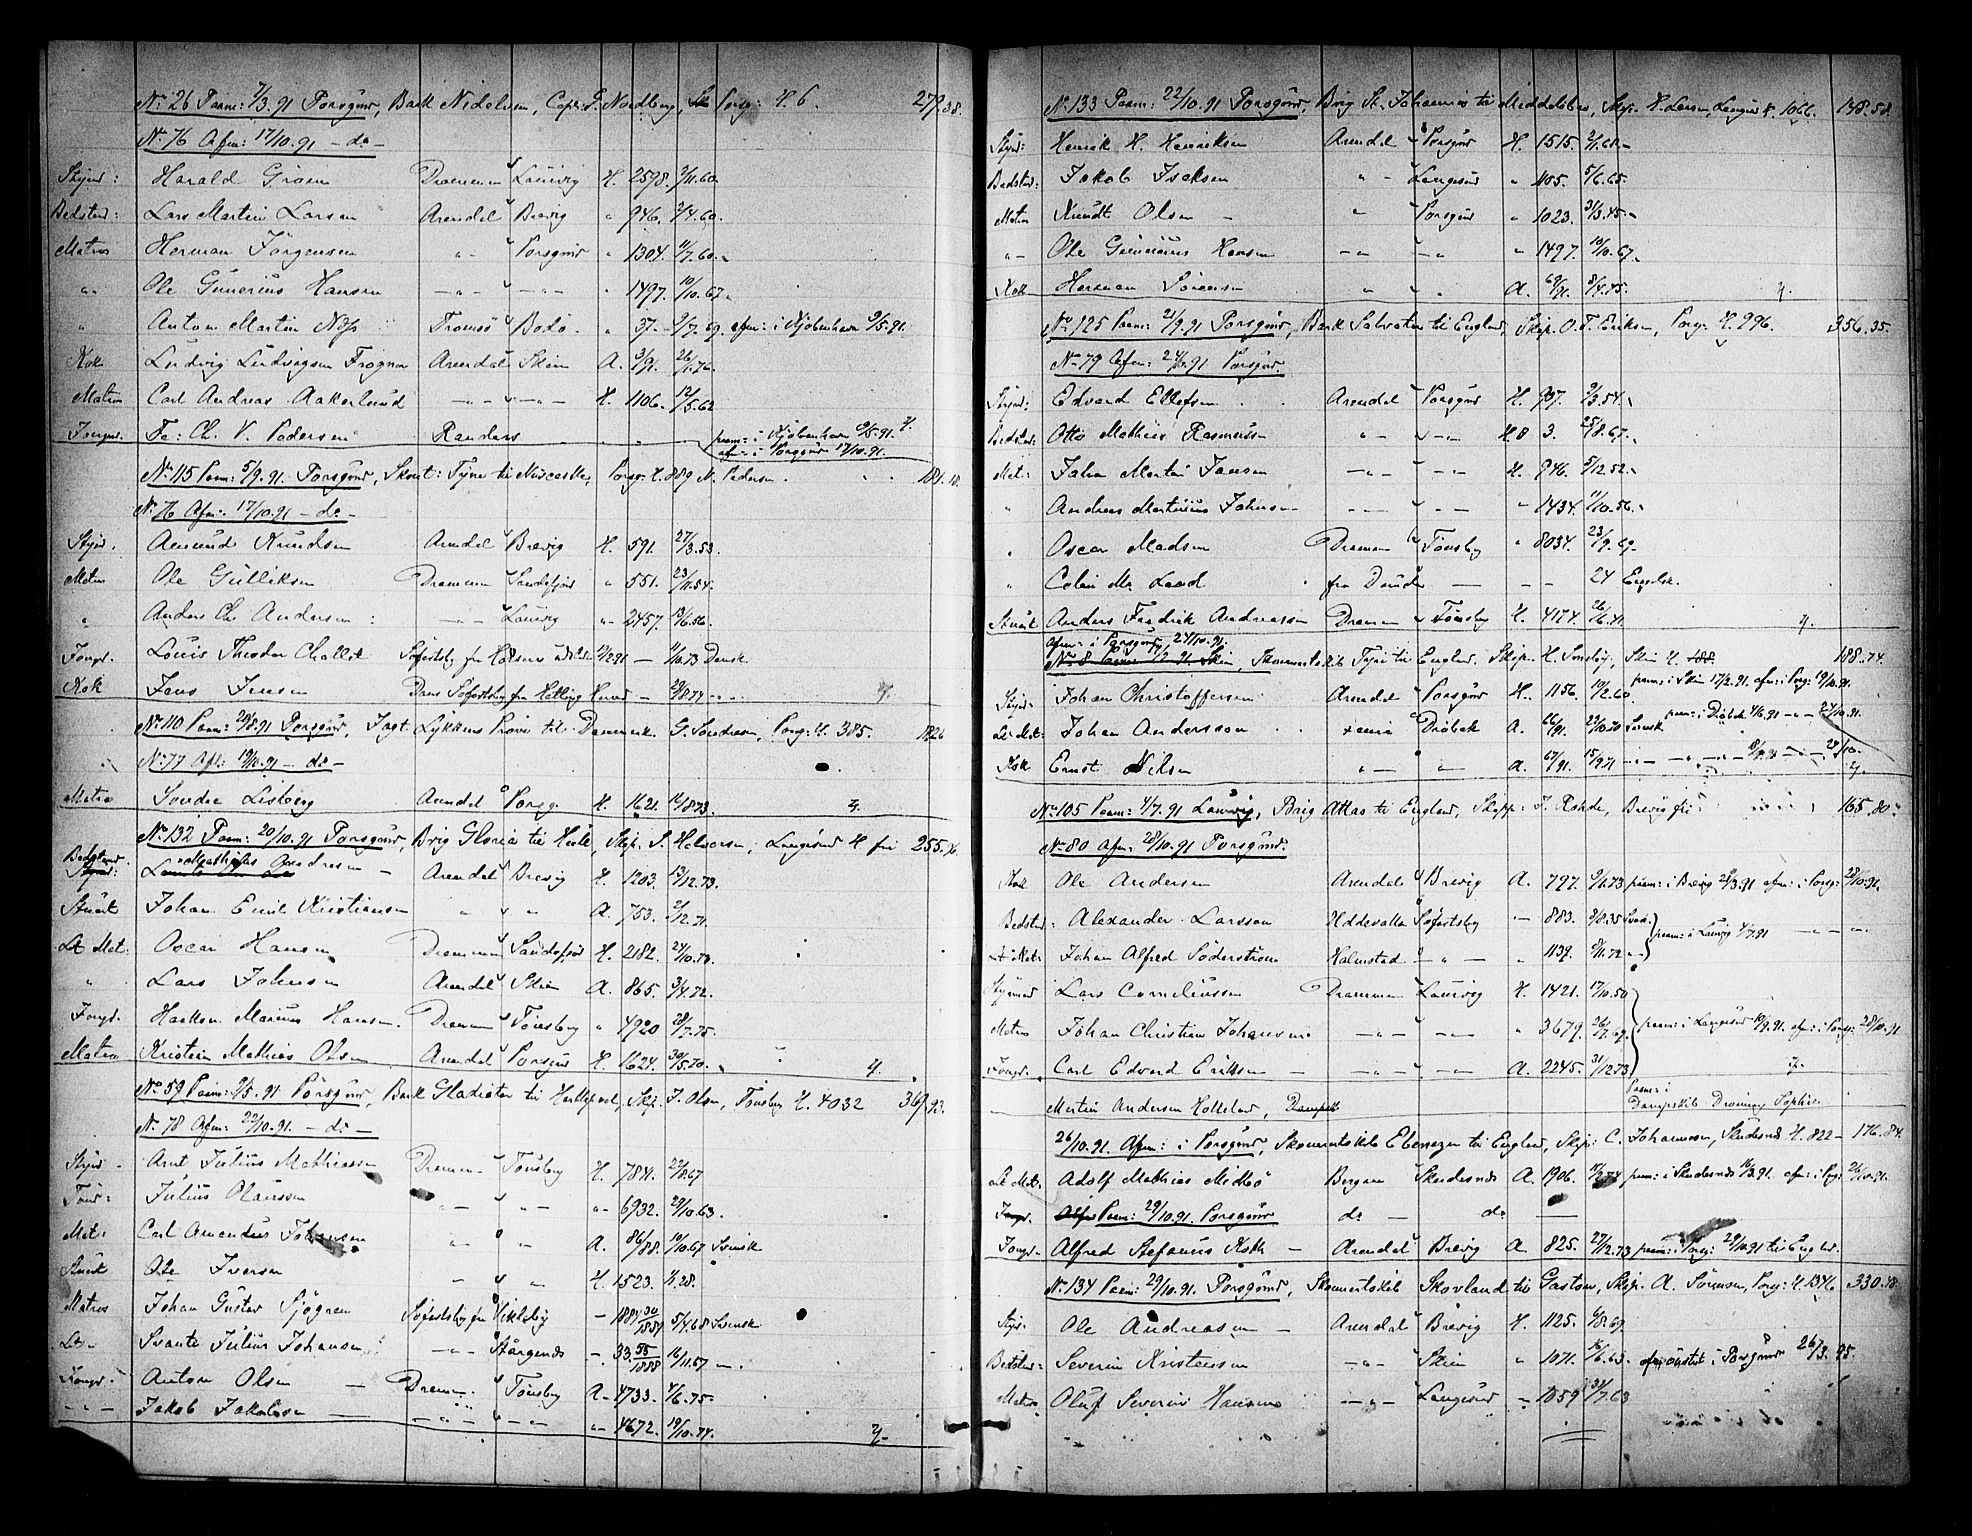 No 26 Paam: 7/3.91 Porsgrund, Bark Nidelven, Capt: G. Nordberg, Porsg: H. 6. 279.38.
No 76 Afm: 17/10.91 - do -
Styrm: Harald Groen Drammen Laurvig H. 2598. 2/11.60.
Bedstm: Lars Martin Larsen Arendal Brevig " 946. 2/4.60.
Matros Herman Jörgensen " - Porsgrund " 1304. 11/7.60.
" Ole Gunerius Hansen - " - - " - " 1497. 10/10.67.
" Anton Martin Næss Tromsö Bodö " 37. 9/7.69. afm: i Kjöbenhavn 9/5.91.
Kok Ludvig Ludvigsen Frogner Arendal Skien A. 3/91. 26/1.76.
Matros Carl Andreas Aakerlund - " - - " - H. 1106. 12/5.62
Jungm. Fr: Ch. V. Pedersen Randers paam: i Kjöbenhavn 9/5.91.
afm: i Porsgrund 17/10.91.
No 115 Paam: 5/9.91. Porsgrund, Skont: Tyne til Newcastle, Porsg: H. 889 N. Pedersen. 181.18.
No 76 Afm: 17/10.91 - do -
Styrm. Amund Knudsen Arendal Brevig H. 591. 27/3.53.
Matros Ole Gulliksen Drammen Sandefjord " 551. 23/11.54.
" Anders Chr. Andersen - " - Laurvig " 2457. 13/6.56.
Jungm. Louis Theodor Challot Söfartsby fra Horsens 1/10.73 Dansk
Kok Jens Jensen Dansk Söfartsby fra 29/8.77
No 110 Paam: 29/8.91 Porsgrund, Jagt Lykkens Pröve til Danmark G. Sondresen, Porsg: H. 385. 18.26
No 77 Afm: 19/10.91 - do -
Matros Sondre Lisberg Arendal Porsg. H. 1621. 14/8.73.
No 132 Paam: 20/10.91 Porsgrund, Brig Gloria til Hasle, Skip. S. Halvorsen, Langesund H fri 255.76.
Bedstmand Mathias Andresen - Arendal Brevig H. 1203. 13/12.73.
Stuert Johan Emil Kristiansen " " A. 753. 2/12.71.
Let Mat: Oscar Hansen Drammen Sandefjord H. 2182. 24/10.70.
" Lars Johnsen Arendal Skien A. 865. 3/4.72.
Jungm. Haakon Marius Hansen. Drammen Tönsberg " 4920 28/7.75.
Matros Kristen Mathias Olsen Arendal Porsgrund H. 1624. 30/5.70.
No 59 Paam: 2/5.91 Porsgrund, Bark Gladiator til Hartlepool, Skip. J. Olsen, Tönsberg H. 4032 367.93.
No 78 Afm: 22/10.91. - do -
Styrm - Arnt Julius Mathiassen Drammen Tönsberg H. 7841. 29/8.67
Julius Olaussen " - - " - " 6932. 29/10.63.
Mat: Carl Amandus Johansen " - " A. 86/88. 10/10.67 Svensk
Stuert Ole Iversen " " H. 1523. 28.
Matros Johan Gustav Sjögren Söfartsby fra Vikleby - 1887 30/1887 5/4.68 Svensk
Svante Julius Johansen - " - - 33. 55/1888 16/11.67 - " -
Jungm. Anton Olsen - Drammen Tönsberg A. 4733. 4/6.75.
- " - Jakob Jakobsen - " - - " - " - 4672. 19/10.74.
No 133 Paam: 22/10.91 Porsgrund, Brig St. Johannes til Middelsbro, Skip. H. Larsen, Langesund H. 1066. 148.58.
Styrm: Henrik H. Henriksen Arendal Porsgrund H. 1515. 2/1.68.
Bedstm: Jakob Isaksen " - Langesund " 1105. 5/6.65.
Matros Knudt Olsen - " Porsgrund " 1023. 31/3.45.
" - Ole Gunerius Hansen - " - - " - " 1497. 10/10.67.
Kok Herman Sörensen " " A. 69/91. 8/4.75.
No 125 Paam: 21/9.91 Porsgrund, Bark Salvator til England, Skip. O. T. Eriksen, Porsg: H. 996. 356.35.
No 79 Afm: 24/10.91 Porsgrund.
Styrm: Edvard Ellefsen Arendal Porsgrund H. 997. 9/3.54.
Bedstm: Otto Mathias Rasmussen " - - " - H O 3. 25/8.67.
Mat: Johan Martin Jansen - " - - " - H. 946. 5/12.52.
" Andreas Martinius Johnsen - " - - " - " 1434. 11/10.56.
" Oscar Madsen Drammen Tönsberg " 8034. 23/9.69.
" Colin Mc. Lead fra Dundee 24 Engelsk.
Stuert Anders Fredrik Andreassen Drammen Tönsberg H. 4174. 26/6.41
afm: i Porsgrund 24/10.91.
No 8 Paam: 91. Skien, Skonnertskib Tyri til England. Skip. H. Tonsberg, Skien H. 188. 188.74.
Styrm: Johan Christoffersen Arendal Porsgrund H. 1156. 19/2.60. paam: i Skien 17/2.91. afm: i Porsg: 19/10.91.
Let Mat: Johan Andersson Dröbak A. 26/91. 29/10.70 Svensk paam: i Dröbak 4/6.91 - " - 24/10.91.
Kok Ernst Nilsen " - " A. 67/91. 15/9.71
No 105 Paam: 4/7.91 Laurvig, Brig Atlas til England, Skipp: J. Rohde, Brevig fri 165.80
No 80 Afm: 28/10.91 Porsgrund.
Kok Ole Andersen Arendal Brevig A. 797. 9/1.73 paam: i Brevig 28/3.91 afm: i Porsg: 28/10.91.
Bedstm: Alexander Larsson Uddevalla Söfartsby - 883. 3/8.35 Svensk
Johan Alfred Söderström Halmstad - " - " 1139. 9/11.72 - " - paam: i Laurvig 4/7.91 - " -
Styrmand Lars Corneliussen Drammen Laurvig H. 1421. 17/10.50
Matros Johan Christian Johansen - " - - " - " 3679. 26/7.69. paam: i Langesund 10/9.91. afm: i Porsg: 28/10.91
Jungm. Carl Edvard Eriksen - - " - - " - A. 2245. 31/12.73
Martin Andersen Holtelar, Dampsk Paam: i
Dampskib Dronning Sophie
26/10.91. Afm: i Porsgrund, Skonnertskib Ebenezer til England, Skip: C. Johannesen, Skudesnæs H. 822 - 176.84.
Let Mat: Adolf Mathias Midbö Bergen Skudesnæs A. 1906. 17/2.74 paam: i Skudesnæs 16/3.91. afm: i Porsg: 26/10.91.
Jungm. Paam: 29/10.91. Porsgrund do - do -
Jungm - Alfred Stefanus Koth - Arendal Brevig A 825. 27/12.73 paam: i Porsg: 29/10.91 til England.
No 134 Paam: 29/10.91. Porsgrund, Skonnertskib Skovland til Gaston, Skip. A. Sörensen, Porsg: H. 1346. 330.18.
Styrm. Ole Andreasen - Arendal Brevig H. 1125. 6/8.69
Bedstm: Severin Kristensen - " - Skien " 1071. 16/6.63. afmönstret i Porsgrund 26/3.95.
Matros Oluf Severin Hansen - " - Langesund - 1059 31/7.63